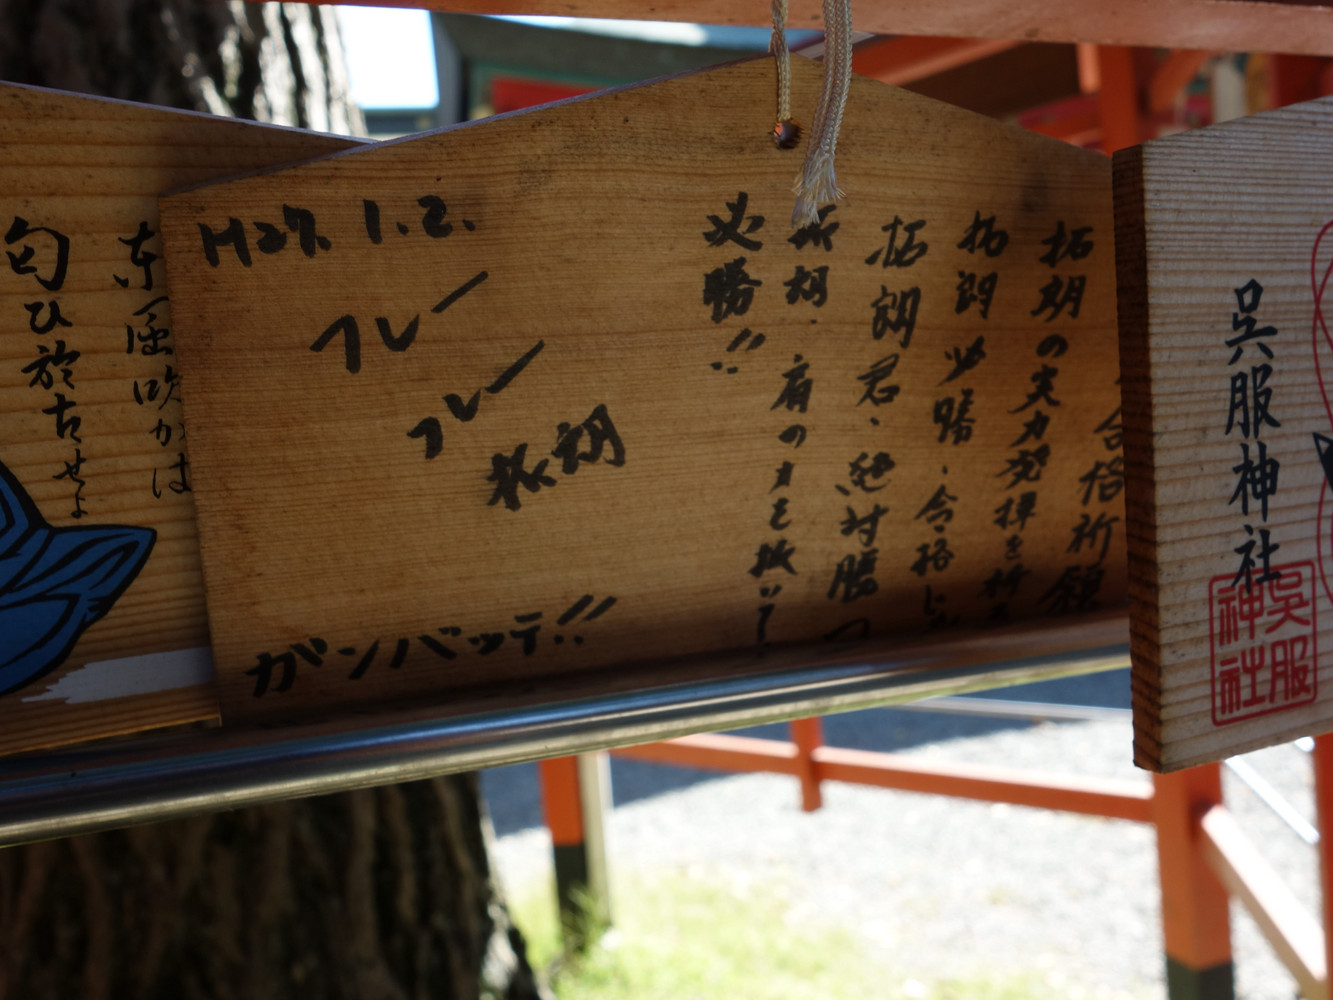 呉服神社
呉服
神社
合格祈願
拓朗の実力発揮を祈
拓朗必勝・合格
拓朗君、絶対勝つ
拓朗、肩の力を抜いて
必勝!!
H27.1.2.
フレー
フレー
拓朗
ガンバッテ!!
東風吹かは
匂ひ於古せよ